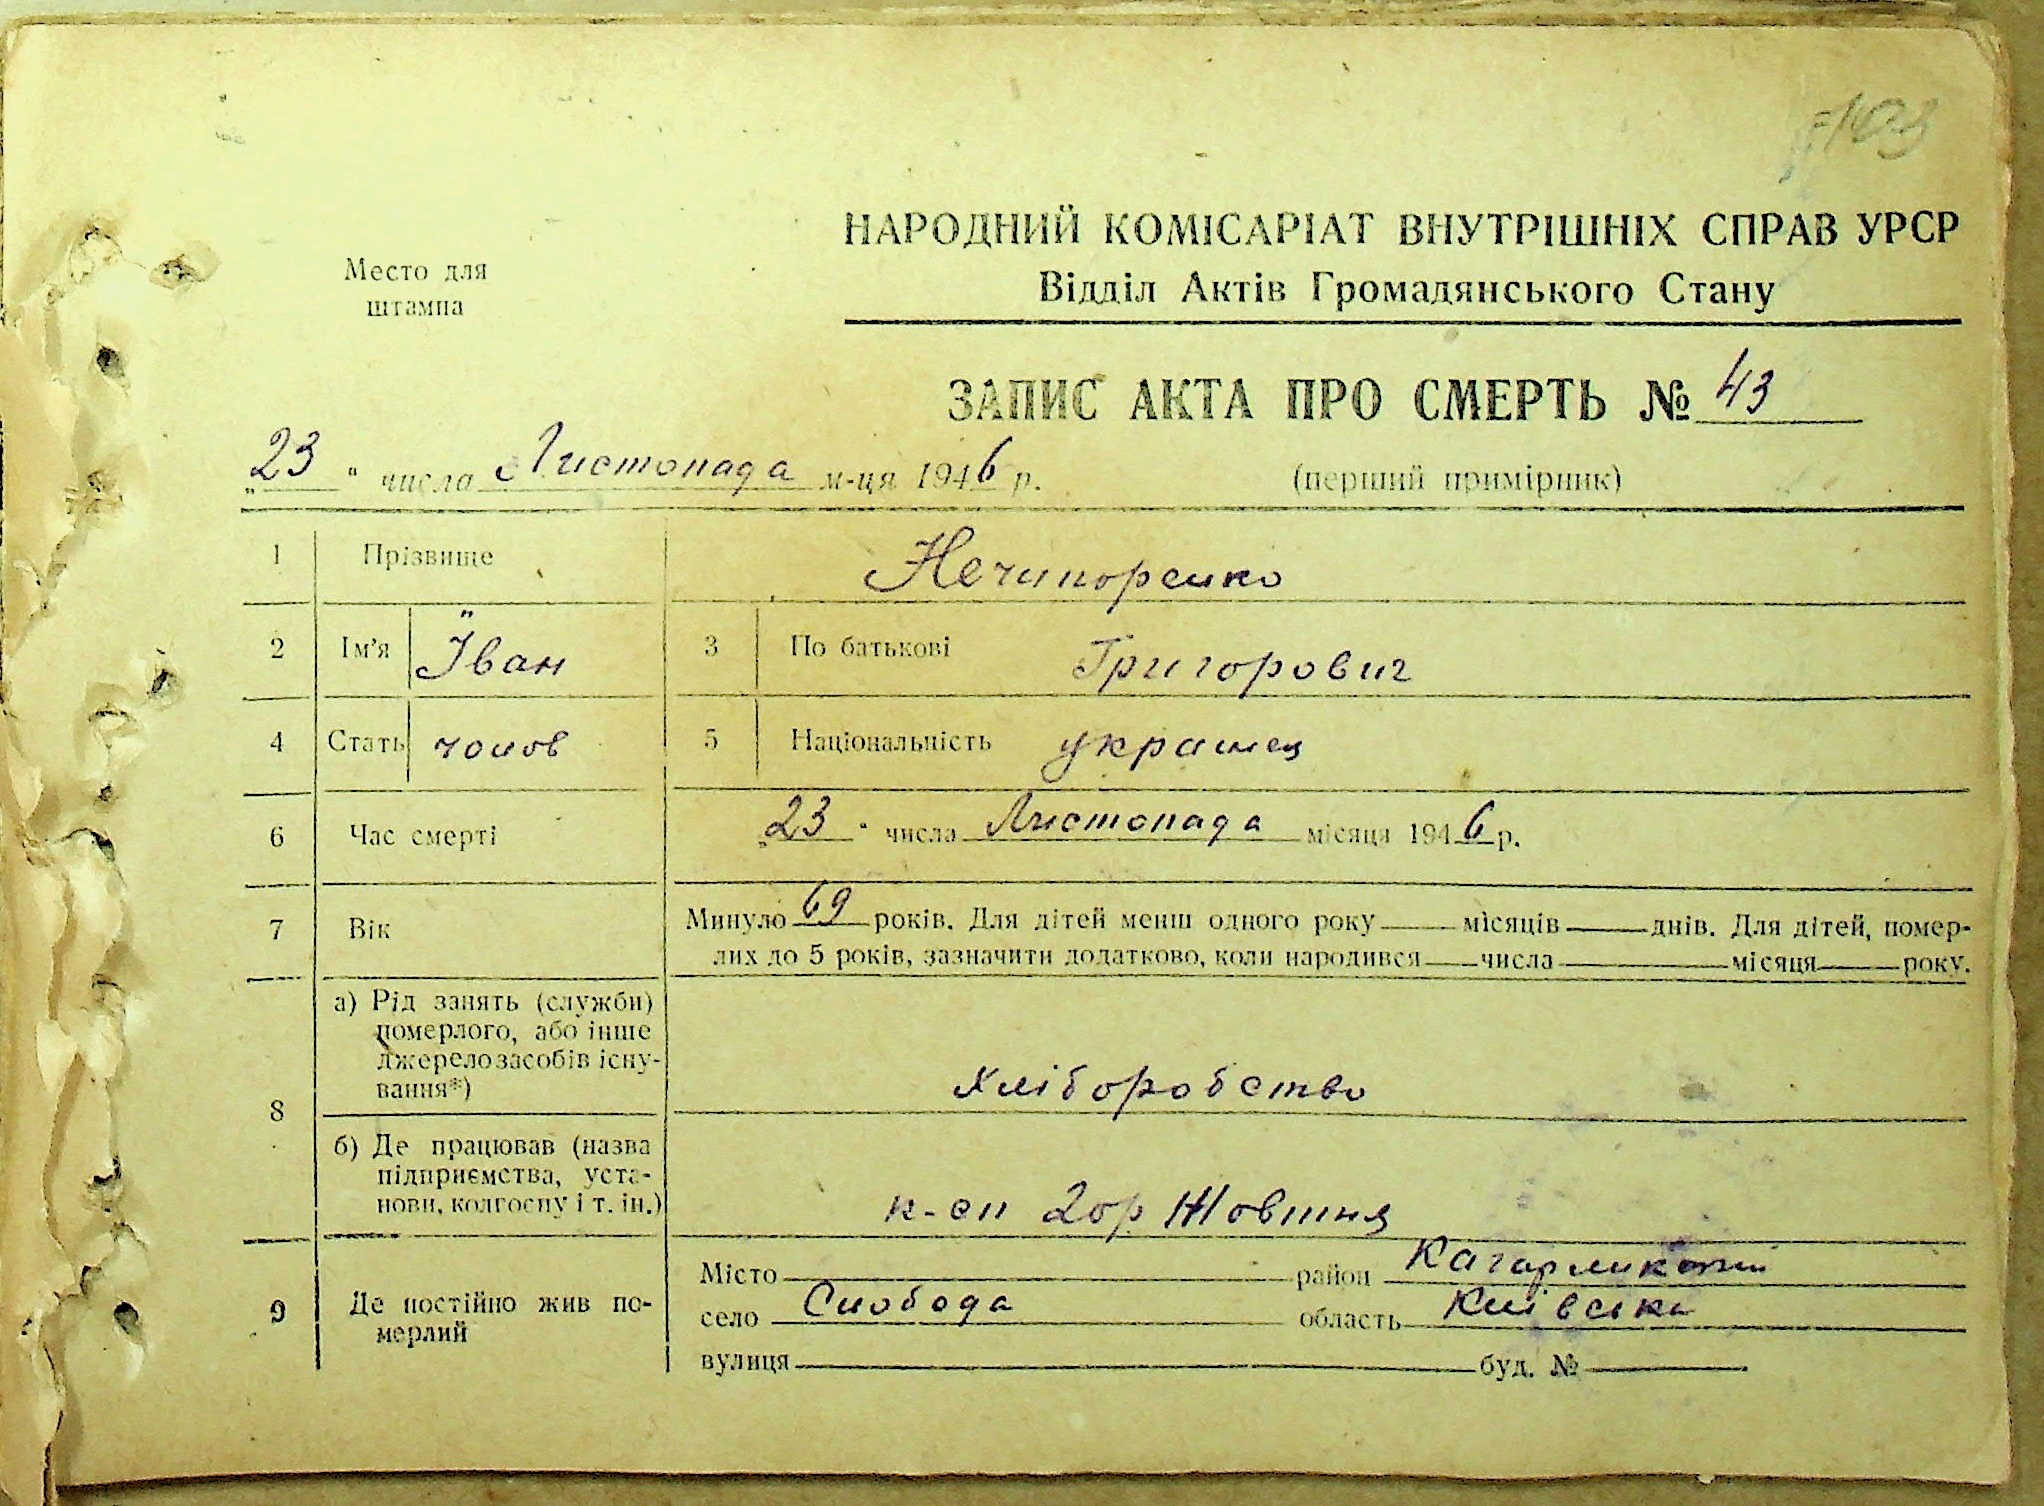 103
НАРОДНИЙ КОМІСАРІАТ ВНУТРІШНІХ СПРАВ УРСР
Место для
штампа
Відділ Актів Громадянського Стану
ЗАПИС АКТА ПРО СМЕРТЬ № 43
„23“ числа Листопада м-ця 1946 р. (перший примірник)
1 Прізвище Нечипоренко
2 Ім'я Їван 3 По батькові Григорович
4 Стать чолов 5 Національність українец
6 Час смерті „23“ числа Листопада місяця 1946 р.
7 Вік Минуло 69 років. Для дітей менш одного року місяців днів. Для дітей, помер-
лих до 5 років, зазначити додатково, коли народився числа місяця року.
8 а) Рід занять (служби)
померлого, або інше
джерело засобів існу-
вання*) хліборобство
б) Де працював (назва
підприємства, уста-
нови, колгоспу і т. ін.) к-сп 2ор Жовтня
9 Де постійно жив по-
мерлий
Місто район Кагарлик
село Слобода область Київська
вулиця буд. №